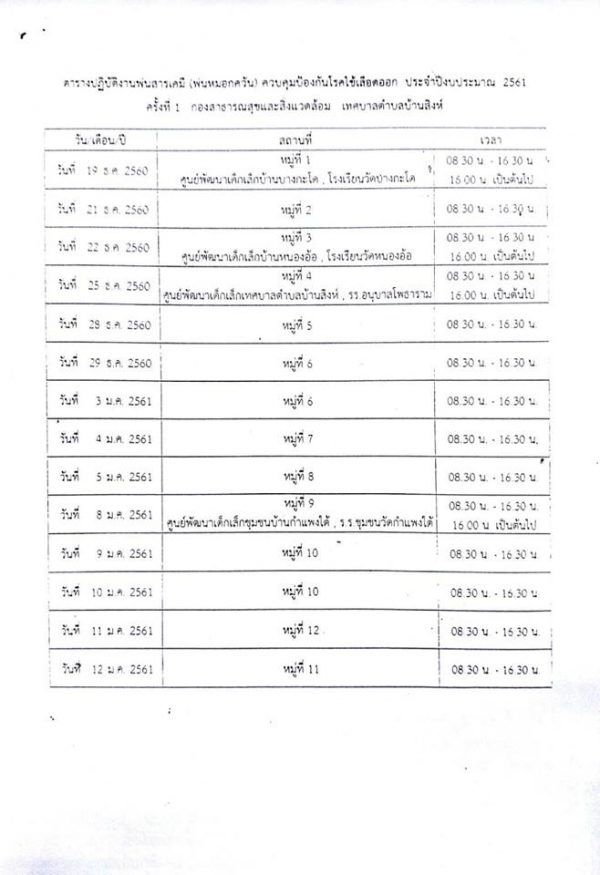 ตารางปฏิบัติงานพ่นสารเคมี (พ่นหมอกควัน) ควบคุมป้องกันโรคไข้เลือดออก ประจำปีงบประมาณ 2561
ครั้งที่ 1 กองสาธารณสุขและสิ่งแวดล้อม เทศบาลตำบลบ้านสิงห์
วัน/เดือน/ปี สถานที่ เวลา
วันที่ 19 ธ.ค. 2560 หมู่ที่ 1 08.30 น. - 16.30 น.
ศูนย์พัฒนาเด็กเล็กบ้านบางกะโด , โรงเรียนวัดบางกะโด 16.00 น. เป็นต้นไป
วันที่ 21 ธ.ค. 2560 หมู่ที่ 2 08.30 น. - 16.30 น.
วันที่ 22 ธ.ค. 2560 หมู่ที่ 3 08.30 น. - 16.30 น.
ศูนย์พัฒนาเด็กเล็กบ้านหนองอ้อ , โรงเรียนวัดหนองอ้อ 16.00 น. เป็นต้นไป
วันที่ 25 ธ.ค. 2560 หมู่ที่ 4 08.30 น. - 16.30 น.
ศูนย์พัฒนาเด็กเล็กเทศบาลตำบลบ้านสิงห์ , รร.อนุบาลโพธาราม 16.00 น. เป็นต้นไป
วันที่ 28 ธ.ค. 2560 หมู่ที่ 5 08.30 น. - 16.30 น.
วันที่ 29 ธ.ค. 2560 หมู่ที่ 6 08.30 น. - 16.30 น.
วันที่ 3 ม.ค. 2561 หมู่ที่ 6 08.30 น. - 16.30 น.
วันที่ 4 ม.ค. 2561 หมู่ที่ 7 08.30 น. - 16.30 น.
วันที่ 5 ม.ค. 2561 หมู่ที่ 8 08.30 น. - 16.30 น.
วันที่ 8 ม.ค. 2561 หมู่ที่ 9 08.30 น. - 16.30 น.
ศูนย์พัฒนาเด็กเล็กชุมชนบ้านกำแพงใต้ , ร.ร.ชุมชนวัดกำแพงใต้ 16.00 น. เป็นต้นไป
วันที่ 9 ม.ค. 2561 หมู่ที่ 10 08.30 น. - 16.30 น.
วันที่ 10 ม.ค. 2561 หมู่ที่ 10 08.30 น. - 16.30 น.
วันที่ 11 ม.ค. 2561 หมู่ที่ 12 08.30 น. - 16.30 น.
วันที่ 12 ม.ค. 2561 หมู่ที่ 11 08.30 น. - 16.30 น.